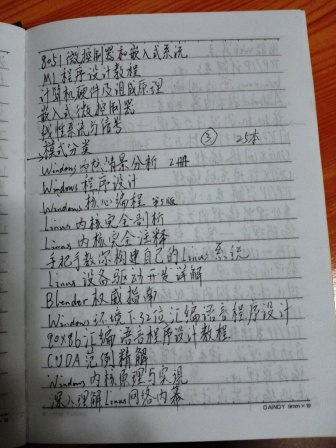 8051微控制器和嵌入式系统
ML程序设计教程
计算机硬件及组成原理
嵌入式微控制器
线性系统与信号
模式分类
③ 25本
Windows内核情景分析 2册
Windows程序设计
Windows核心编程 第5版
Linux内核完全剖析
Linux内核完全注释
手把手教你构建自己的Linux系统
Linux设备驱动开发详解
Blender权威指南
Windows环境下32位汇编语言程序设计
80x86汇编语言程序设计教程
CUDA范例精解
Windows内核原理与实现
深入理解Linux网络内幕
DAINDY 8mm×19